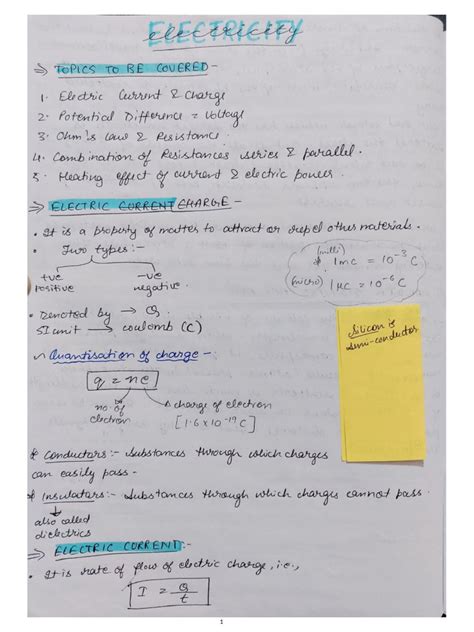 ELECTRICITY
electricity
⇒ TOPICS TO BE COVERED -
1. Electric Current & Charge
2. Potential Difference = Voltage
3. Ohm's Law & Resistance
4. Combination of Resistances series & parallel.
5. Heating effect of current & electric power.
⇒ ELECTRIC CURRENT CHARGE -
• It is a property of matter to attract or repel other materials.
• Two types:-
+ve positive
-ve negative
(milli)
* 1mC = 10⁻³ C
(micro) 1μC = 10⁻⁶ C
• Denoted by → Q.
SI unit → coulomb (C)
Quantisation of charge -:
q = ne
no. of electron
charge of electron
[1.6 x 10⁻¹⁹ C]
Silicon is
semi-conductor
* Conductors:- Substances through which charges
can easily pass -
* Insulators:- Substances through which charges cannot pass.
also called
dielectrics
⇒ ELECTRIC CURRENT:-
• It is rate of flow of electric charge, i.e.,
I = Q/t
1